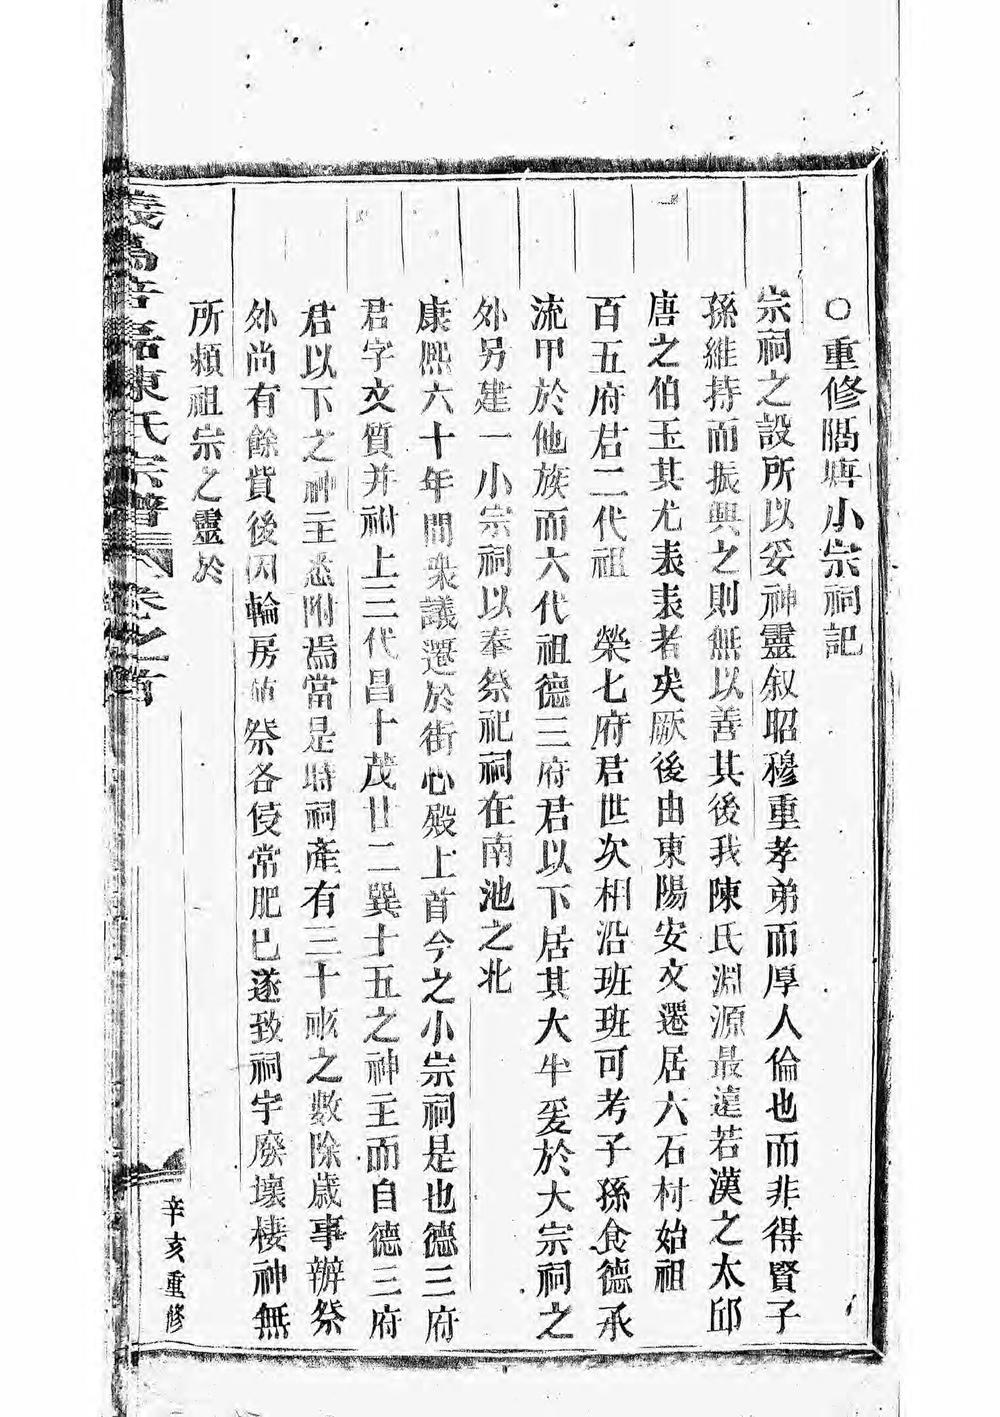 ○重修隅塘小宗祠記
宗祠之設所以妥神靈叙昭穆重孝弟而厚人倫也而非得賢子
孫維持而振興之則無以善其後我陳氏淵源最遠若漢之太邱
唐之伯玉其尤表表者矣厥後由東陽安文遷居六石村始祖
百五府君二代祖 榮七府君世次相沿班班可考子孫食德承
流甲於他族而六代祖德三府君以下居其大半爰於大宗祠之
外另建一小宗祠以奉祭祀祠在南池之北
康熙六十年間衆議遷於街心殿上首今之小宗祠是也德三府
君字文質并祔上三代昌十茂廿二巽十五之神主而自德三府
君以下之神主悉附焉當是時祠產有三十畝之數除歲事辦祭
外尚有餘貲後因輪房值祭各侵常肥已遂致祠宇廢壞棲神無
所賴祖宗之靈於
陳氏宗譜 卷之首
辛亥重修